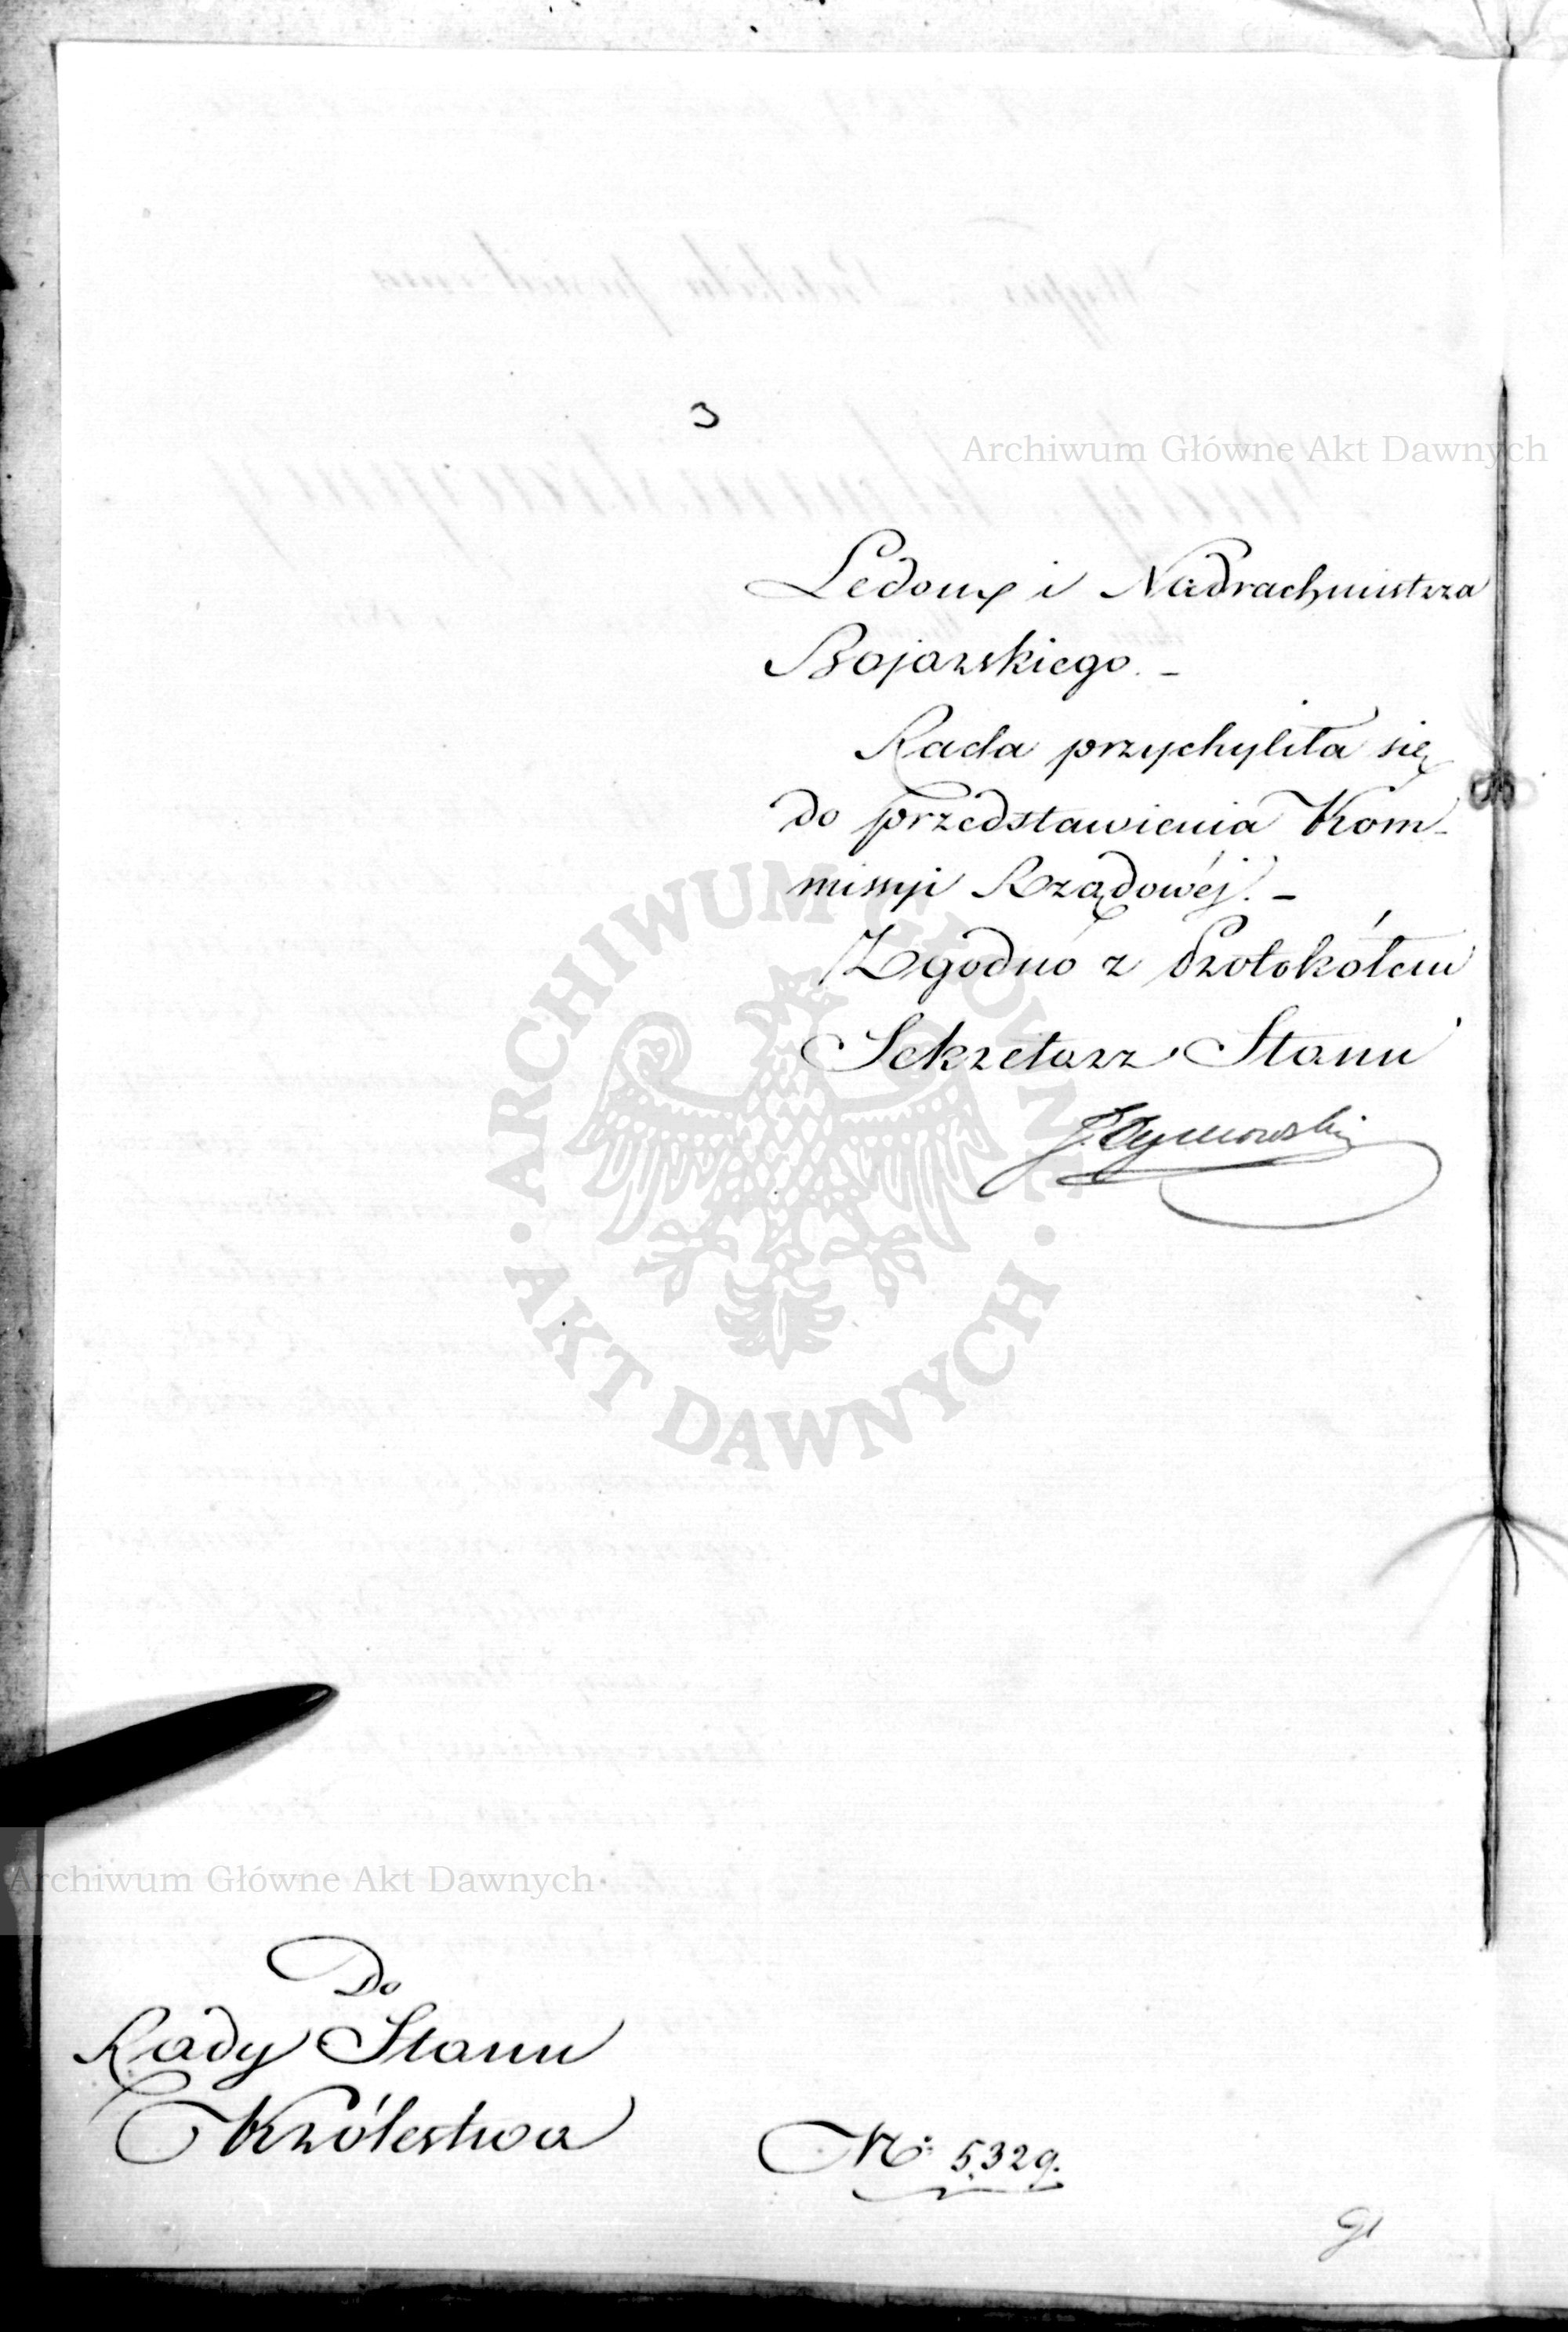 3
Archiwum Główne Akt Dawnych
Ledoux i Nadrachmistrza
Bojarskiego. -
Rada przychyliła się
do przedstawienia Kom-
missyi Rządowéj. -
Zgodno z Protokółem
Sekretarz Stanu
J. Tymowski
ARCHIWUM GŁÓWNE
· AKT DAWNYCH ·
Archiwum Główne Akt Dawnych
Do
Rady Stanu
Królestwa
No: 5329.